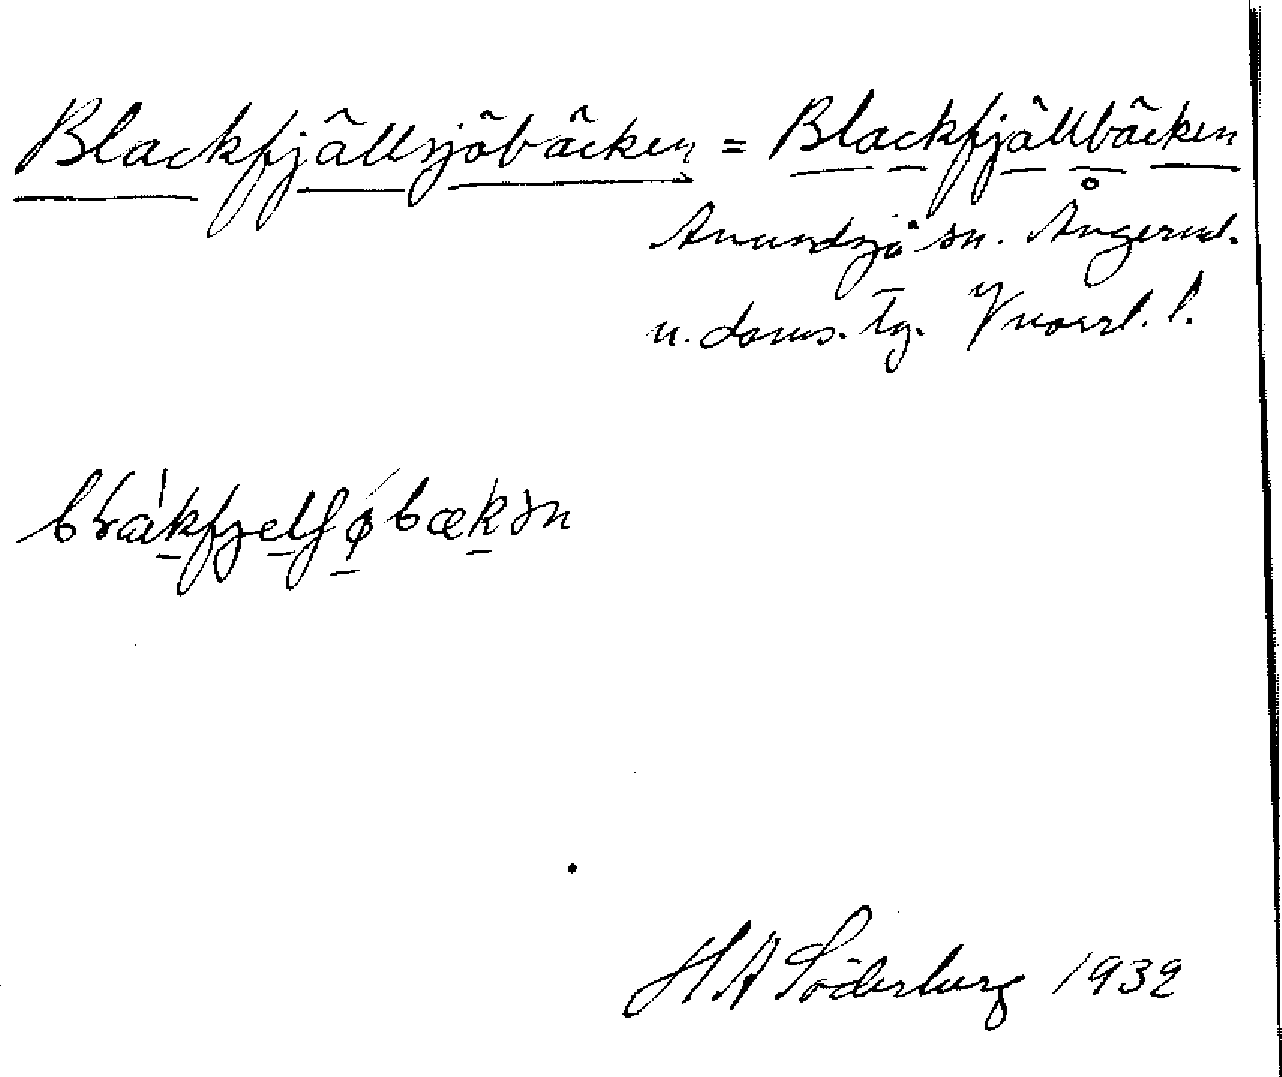 Blackfjällsjöbäcken = Blackfjällbäcken
Anundsjö sn. Ångerml.
n. doms. tg. Vnorrl. l.
H A Söderberg 1932